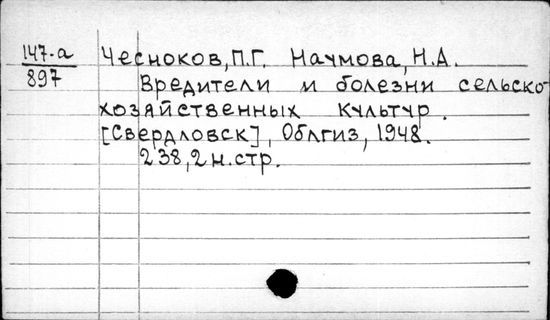 147-а
897
Чесноков, П.Г. Наумова, Н.А.
Вредители и болезни сельско-
хозяйственных культур.
[Свердловск], Облгиз, 1948.
238, 2 н.стр.